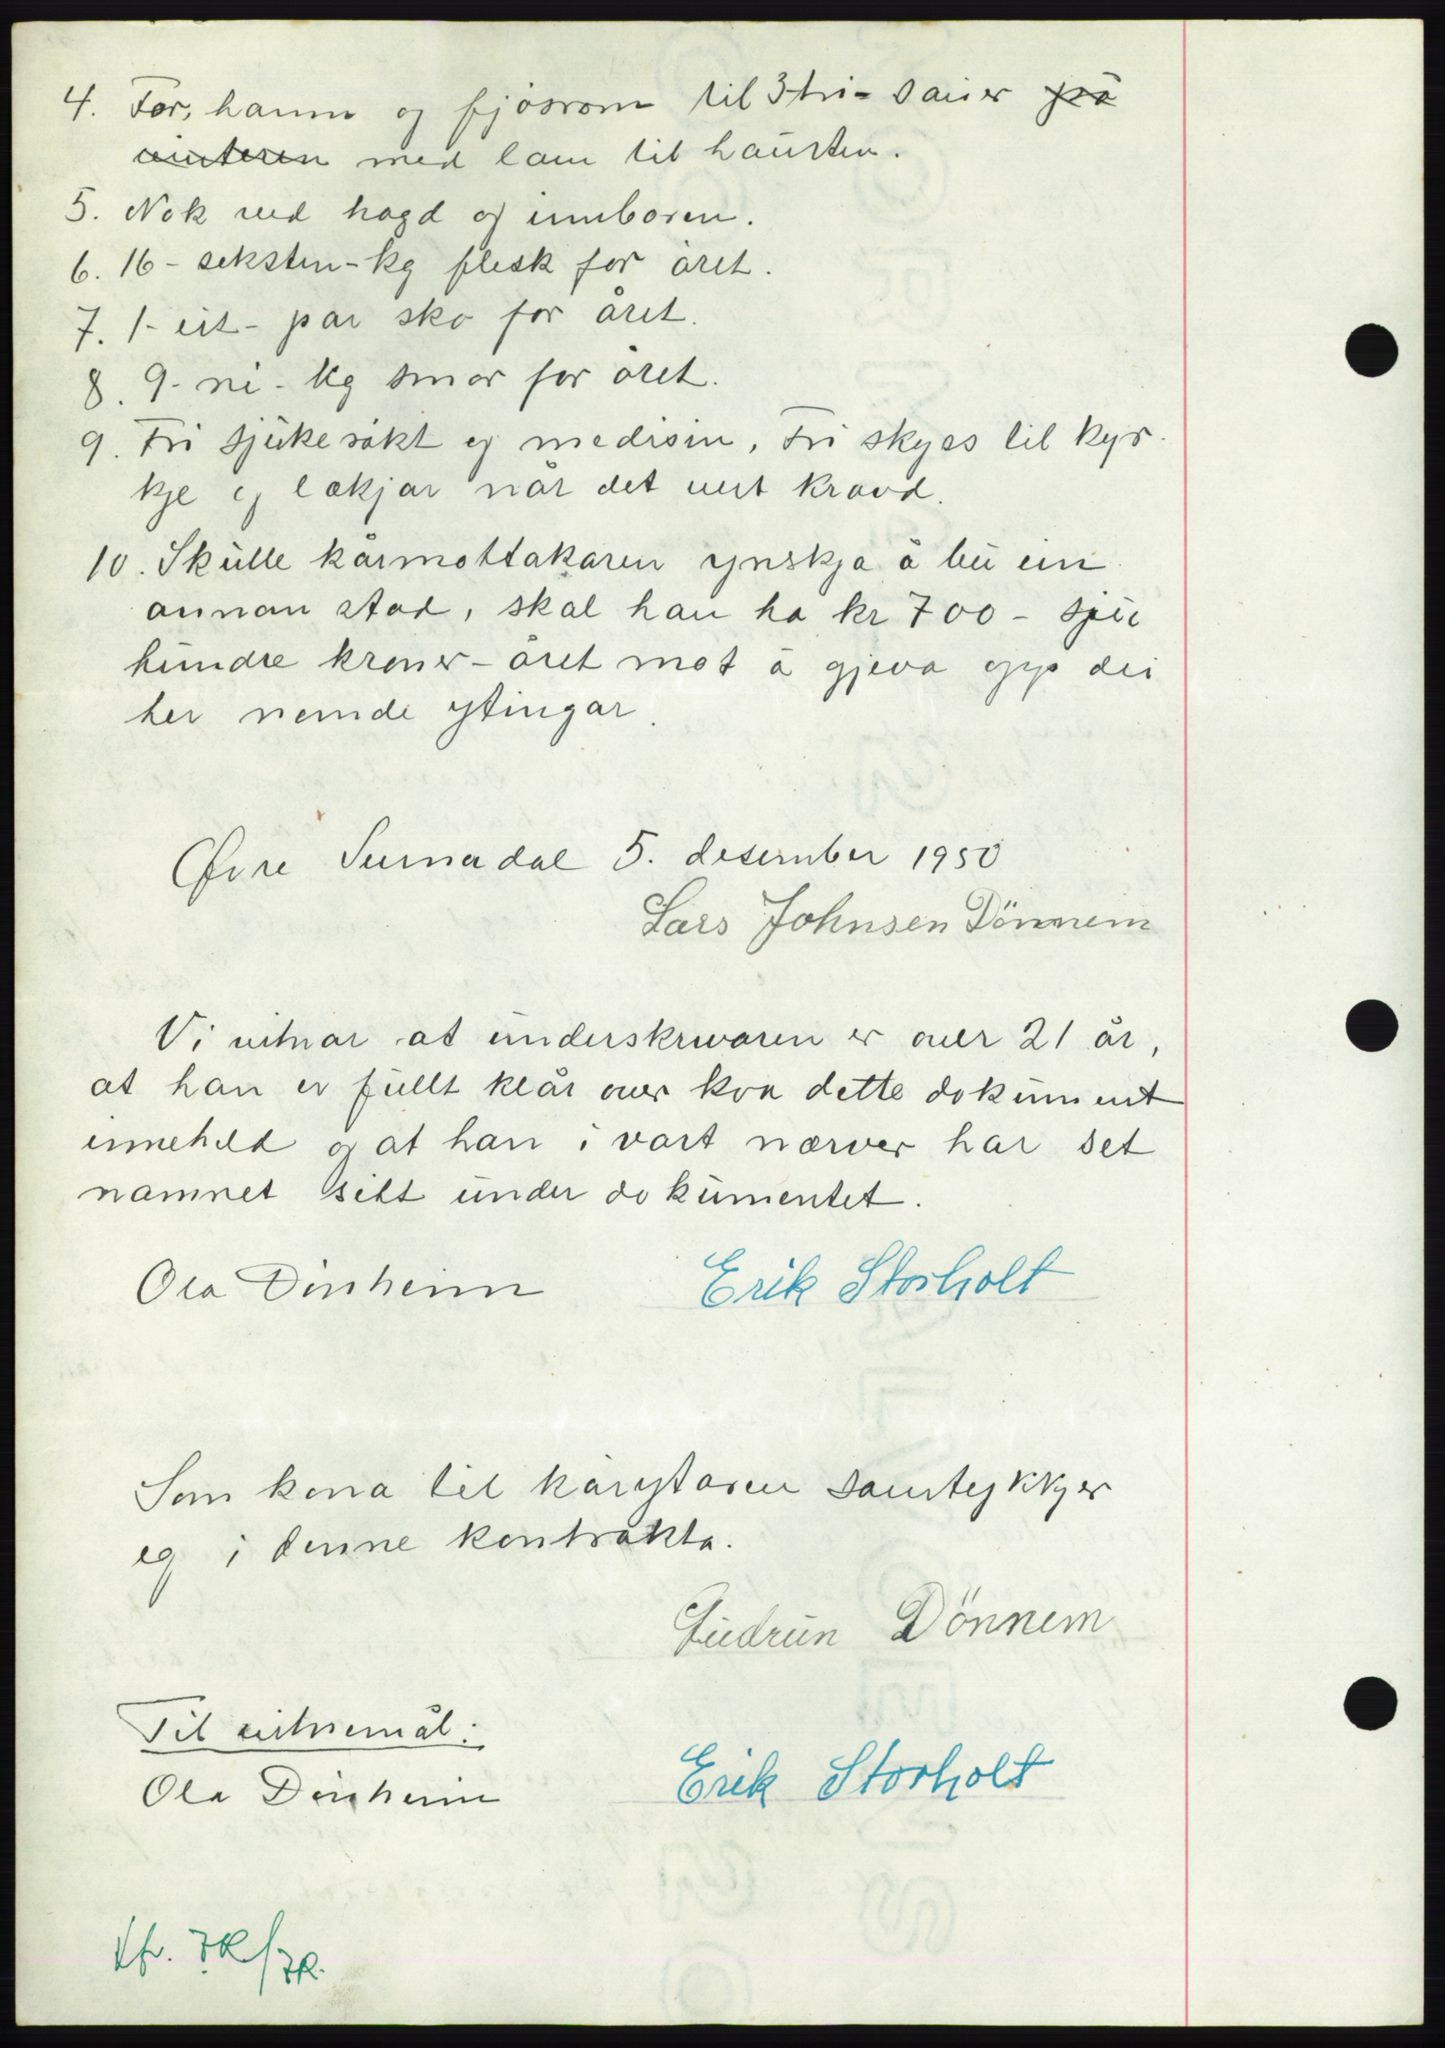 4. For, hamn og fjøsrom til 3-tri- sauer på
vinteren med lam til hausten.
5. Nok ved hogd og innboren.
6. 16 - seksten - kg flesk for året.
7. 1 - eit - par sko for året.
8. 9 - ni - kg smør for året.
9. Fri sjukesøkt og medisin, Fri skyss til kyr-
kje og lækjar når det vert kravd.
10. Skulle kårmottakaren ynskja å bu ein
annan stad, skal han ha kr 700 - sju
hundre kroner - året mot å gjeva opp dei
her nemde ytingar.
Øvre Surnadal 5. desember 1950
Lars Johnsen Dönnem
Vi vitnar at underskrivaren er over 21 år,
at han er fullt klår over kva dette dokument
inneheld og at han i vårt nærver har set
namnet sitt under dokumentet.
Ola Dønheim Erik Storholt
Som kona til kårytaren samtykkjer
eg i denne kontrakta.
Gudrun Dönnem
Til vitnemål:
Ola Dønheim Erik Storholt